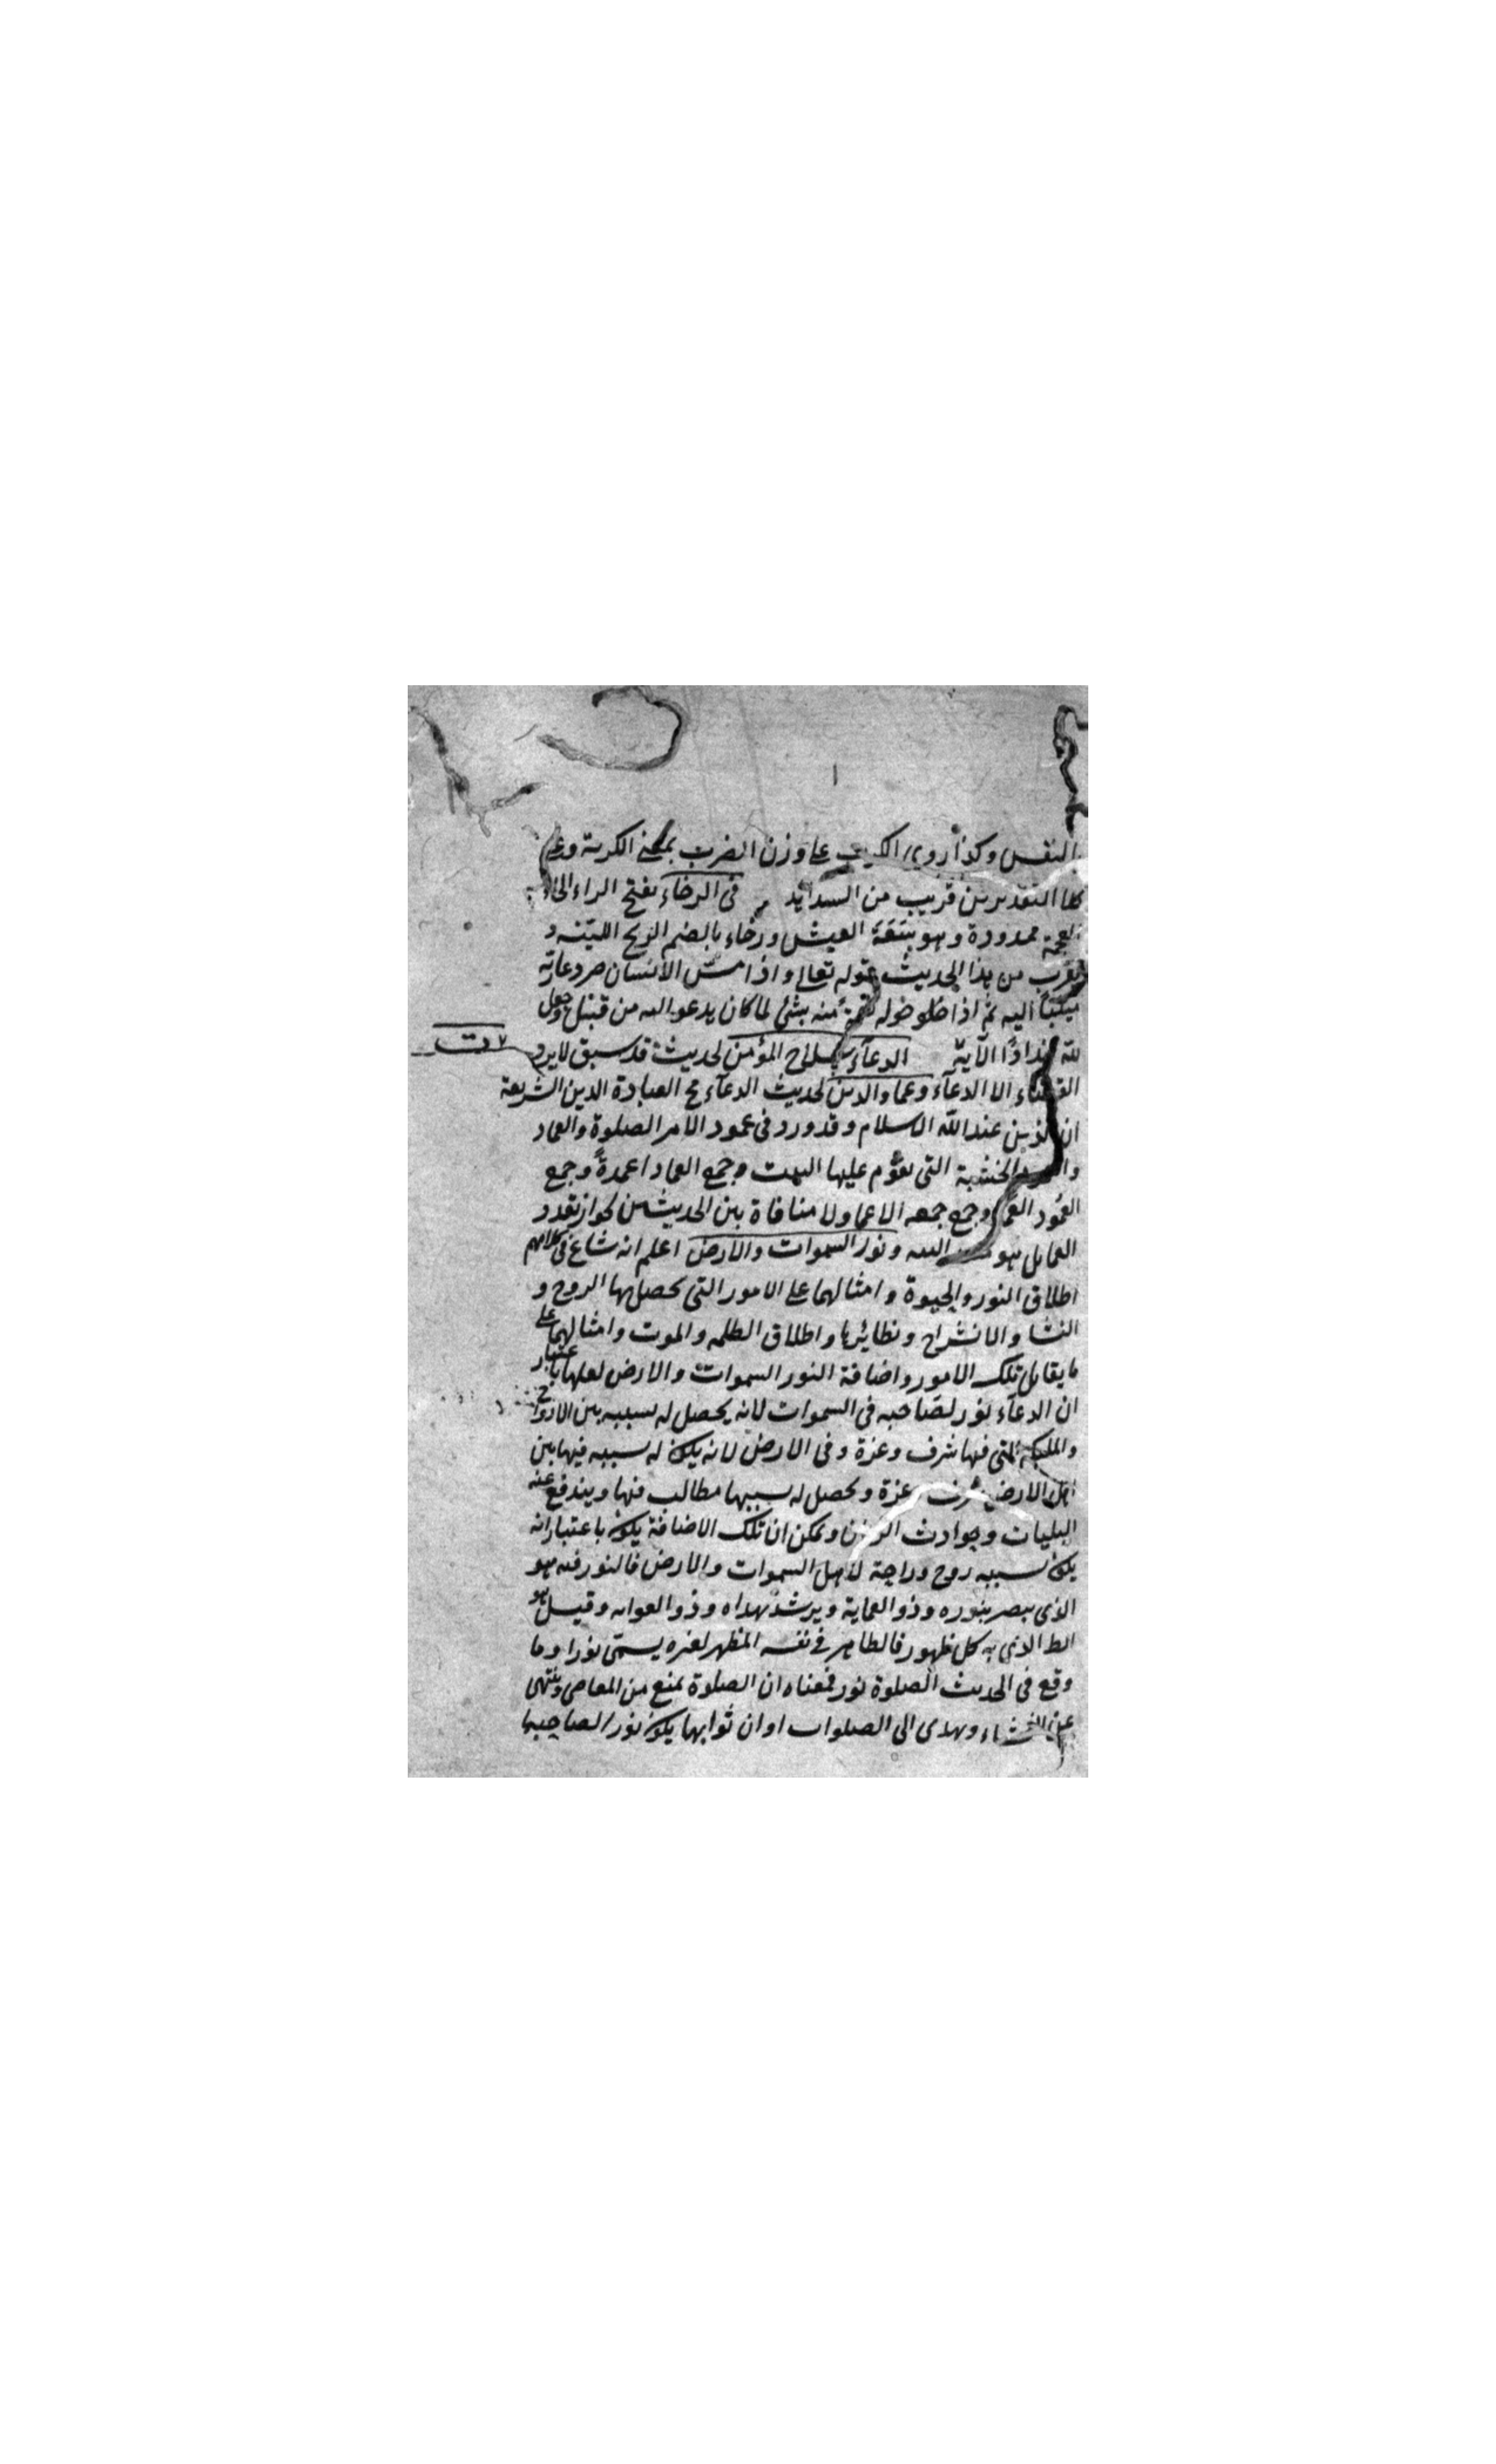 بالنفس وكذا روى الكرب على وزن الضرب بمعنى الكربة وعلى
كلا التقديرين قريب من الشدايد في الرخاء بفتح الراء الخاء
المعجمة ممدودة وهو سَعَة العيش ورخاء بالضم الريح الليّنه و
يقرب من هذا الحديث قوله تعالى واذا مسّ الانسان ضر دعا ربه
منيباً اليه ثم اذا خوله نعمة منه لما كان يدعو اليه من قبل وجعل
لله انداداً الآية الدعآء سلاح المؤمن لحديث قد سبق لا يرد
القضاء الا الدعآء وعماد الدين لحديث الدعآء مخ العبادة الدين الشريعة
ان الدين عند الله الاسلام وقد ورد في عمود الامر الصلوة والعماد
الخشبة التي تقوم عليها البيت وجمع العماد اعمدة وجمع
العمود العمد وجمع جمعه ولا منافاة بين الحديثين لجواز تعدد
هو ونور السموات والارض اعلم انه شاع في كلامهم
اطلاق النور والحيوة وامثالهما على الامور التي يحصل بها الروح و
والانشراح ونظايرها واطلاق الظلمه والموت وامثالهما على
ما يقابل تلك الامور واضافة النور السموات والارض لعلها باعتبار
ان الدعآء نور لصاحبه في السموات لانه يحصل له بسببه بين الارواح
والملئكة التي فيها شرف وعزة وفي الارض لانه يكون له بسببه فيها بين
اهل الارض شرف عزة ويحصل له بسببها مطالب فيها ويندفع عنه
البليات وحوادث الزمن ويمكن ان تلك الاضافة يكون باعتبار انه
يكون بسببه روح وراحة لاهل السموات والارض فالنور فيه هو
الذي يبصر بنوره وذو العماية ويرشد بهداه وذو الغوايه وقيل هو
الذي به كل ظهور فالظاهر في نفسه المظهر لغيره يسمى نورا وما
وقع في الحديث الصلوة نور فمعناه ان الصلوة تمنع من المعاصي وتنتهى
عن ويهدى الى او ان ثوابها يكون نورا لصاحبها